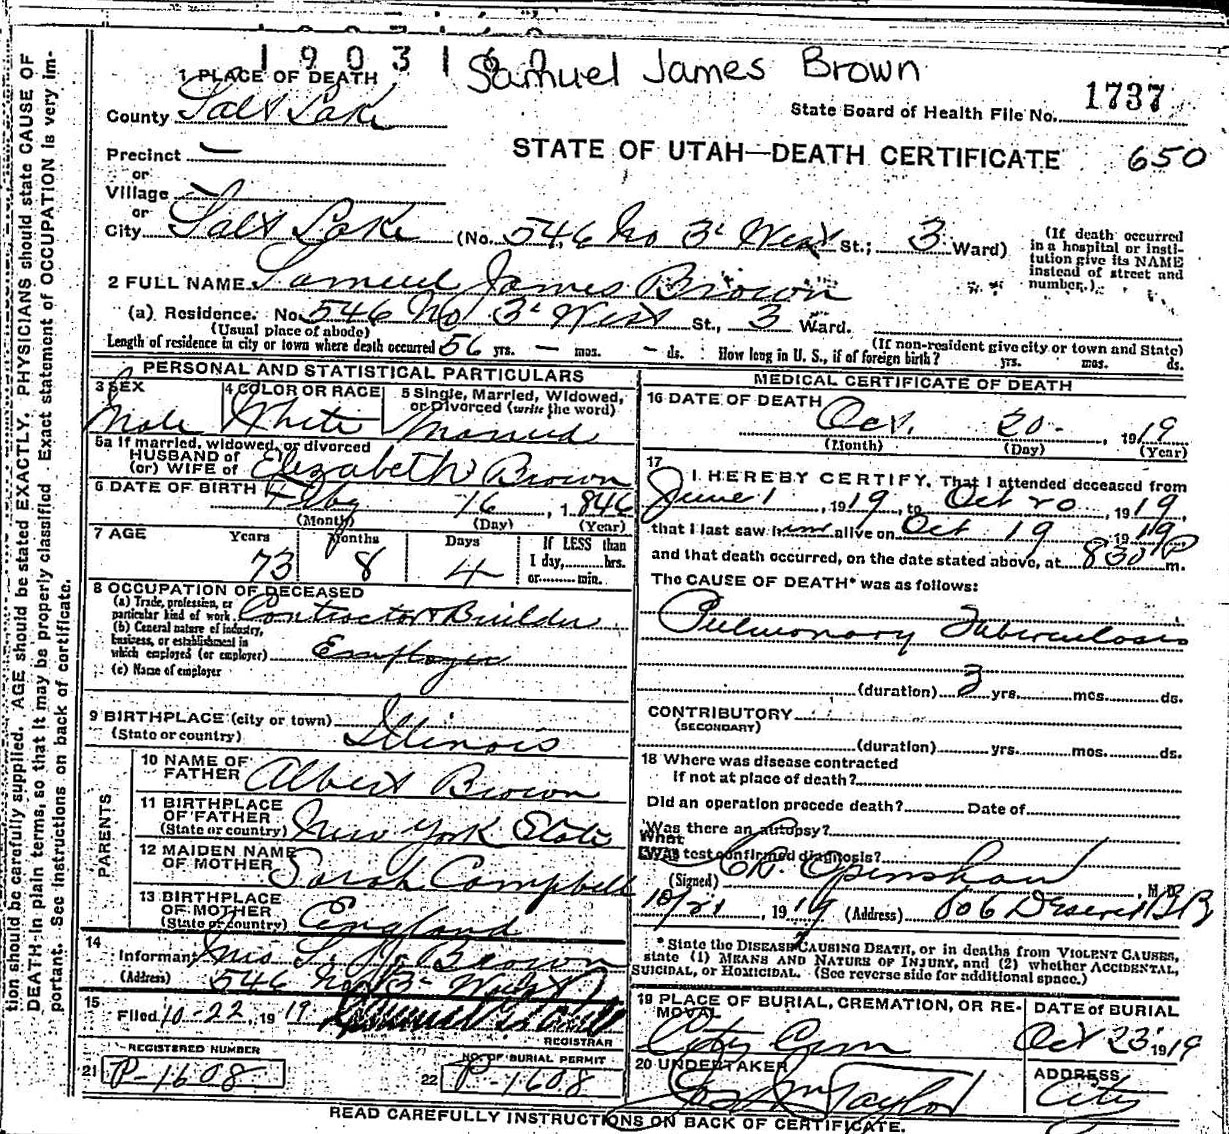 190316
Samuel James Brown
1 PLACE OF DEATH
State Board of Health File No. 1737
County Salt Lake
STATE OF UTAH—DEATH CERTIFICATE 650
Precinct —
or
Village —
or
City Salt Lake (No. 546 No 3d West St.; 3 Ward)
(If death occurred in a hospital or institution give its NAME instead of street and number.)
2 FULL NAME Samuel James Brown
(a) Residence. No. 546 No 3d West St., 3 Ward.
(Usual place of abode) (If non-resident give city or town and State)
Length of residence in city or town where death occurred 56 yrs. — mos. — ds. How long in U. S., if of foreign birth? yrs. mos. ds.
PERSONAL AND STATISTICAL PARTICULARS
3 SEX Male
4 COLOR OR RACE White
5 Single, Married, Widowed, or Divorced (write the word) Married
5a If married, widowed, or divorced
HUSBAND of
(or) WIFE of Elizabeth Brown
6 DATE OF BIRTH Feby 16, 1846
(Month) (Day) (Year)
7 AGE Years Months Days If LESS than
73 8 4 1 day,......hrs.
or......min.
8 OCCUPATION OF DECEASED
(a) Trade, profession, or particular kind of work Contractor & Builder
(b) General nature of industry, business, or establishment in which employed (or employer) Employer
(c) Name of employer
9 BIRTHPLACE (city or town)
(State or country) Illinois
PARENTS
10 NAME OF FATHER Albert Brown
11 BIRTHPLACE OF FATHER (State or country) New York State
12 MAIDEN NAME OF MOTHER Sarah Campbell
13 BIRTHPLACE OF MOTHER (State or country) England
14 Informant Mrs S. J. Brown
(Address) 546 No 3d West
15 Filed 10-22, 1919
REGISTRAR
REGISTERED NUMBER
21 P-1608
NO. OF BURIAL PERMIT
22 P-1608
MEDICAL CERTIFICATE OF DEATH
16 DATE OF DEATH
Oct. 20, 1919
(Month) (Day) (Year)
17 I HEREBY CERTIFY, That I attended deceased from
June 1, 1919, to Oct 20, 1919,
that I last saw him alive on Oct 19, 1919
and that death occurred, on the date stated above, at 830 P m.
The CAUSE OF DEATH* was as follows:
Pulmonary Tuberculosis
(duration) 3 yrs. mos. ds.
CONTRIBUTORY
(SECONDARY)
(duration) yrs. mos. ds.
18 Where was disease contracted
if not at place of death?
Did an operation precede death? Date of
Was there an autopsy?
What test confirmed diagnosis?
(Signed) Openshaw, M. D.
10/21, 1919 (Address) 806 Deseret B B
*State the DISEASE CAUSING DEATH, or in deaths from VIOLENT CAUSES, state (1) MEANS AND NATURE OF INJURY, and (2) whether ACCIDENTAL, SUICIDAL, or HOMICIDAL. (See reverse side for additional space.)
19 PLACE OF BURIAL, CREMATION, OR REMOVAL City Cem
DATE of BURIAL Oct 23 1919
20 UNDERTAKER Jos Wm Taylor
ADDRESS City
READ CAREFULLY INSTRUCTIONS ON BACK OF CERTIFICATE.
tion should be carefully supplied. AGE should be stated EXACTLY. PHYSICIANS should state CAUSE OF
DEATH in plain terms, so that it may be properly classified. Exact statement of OCCUPATION is very im-
portant. See instructions on back of certificate.